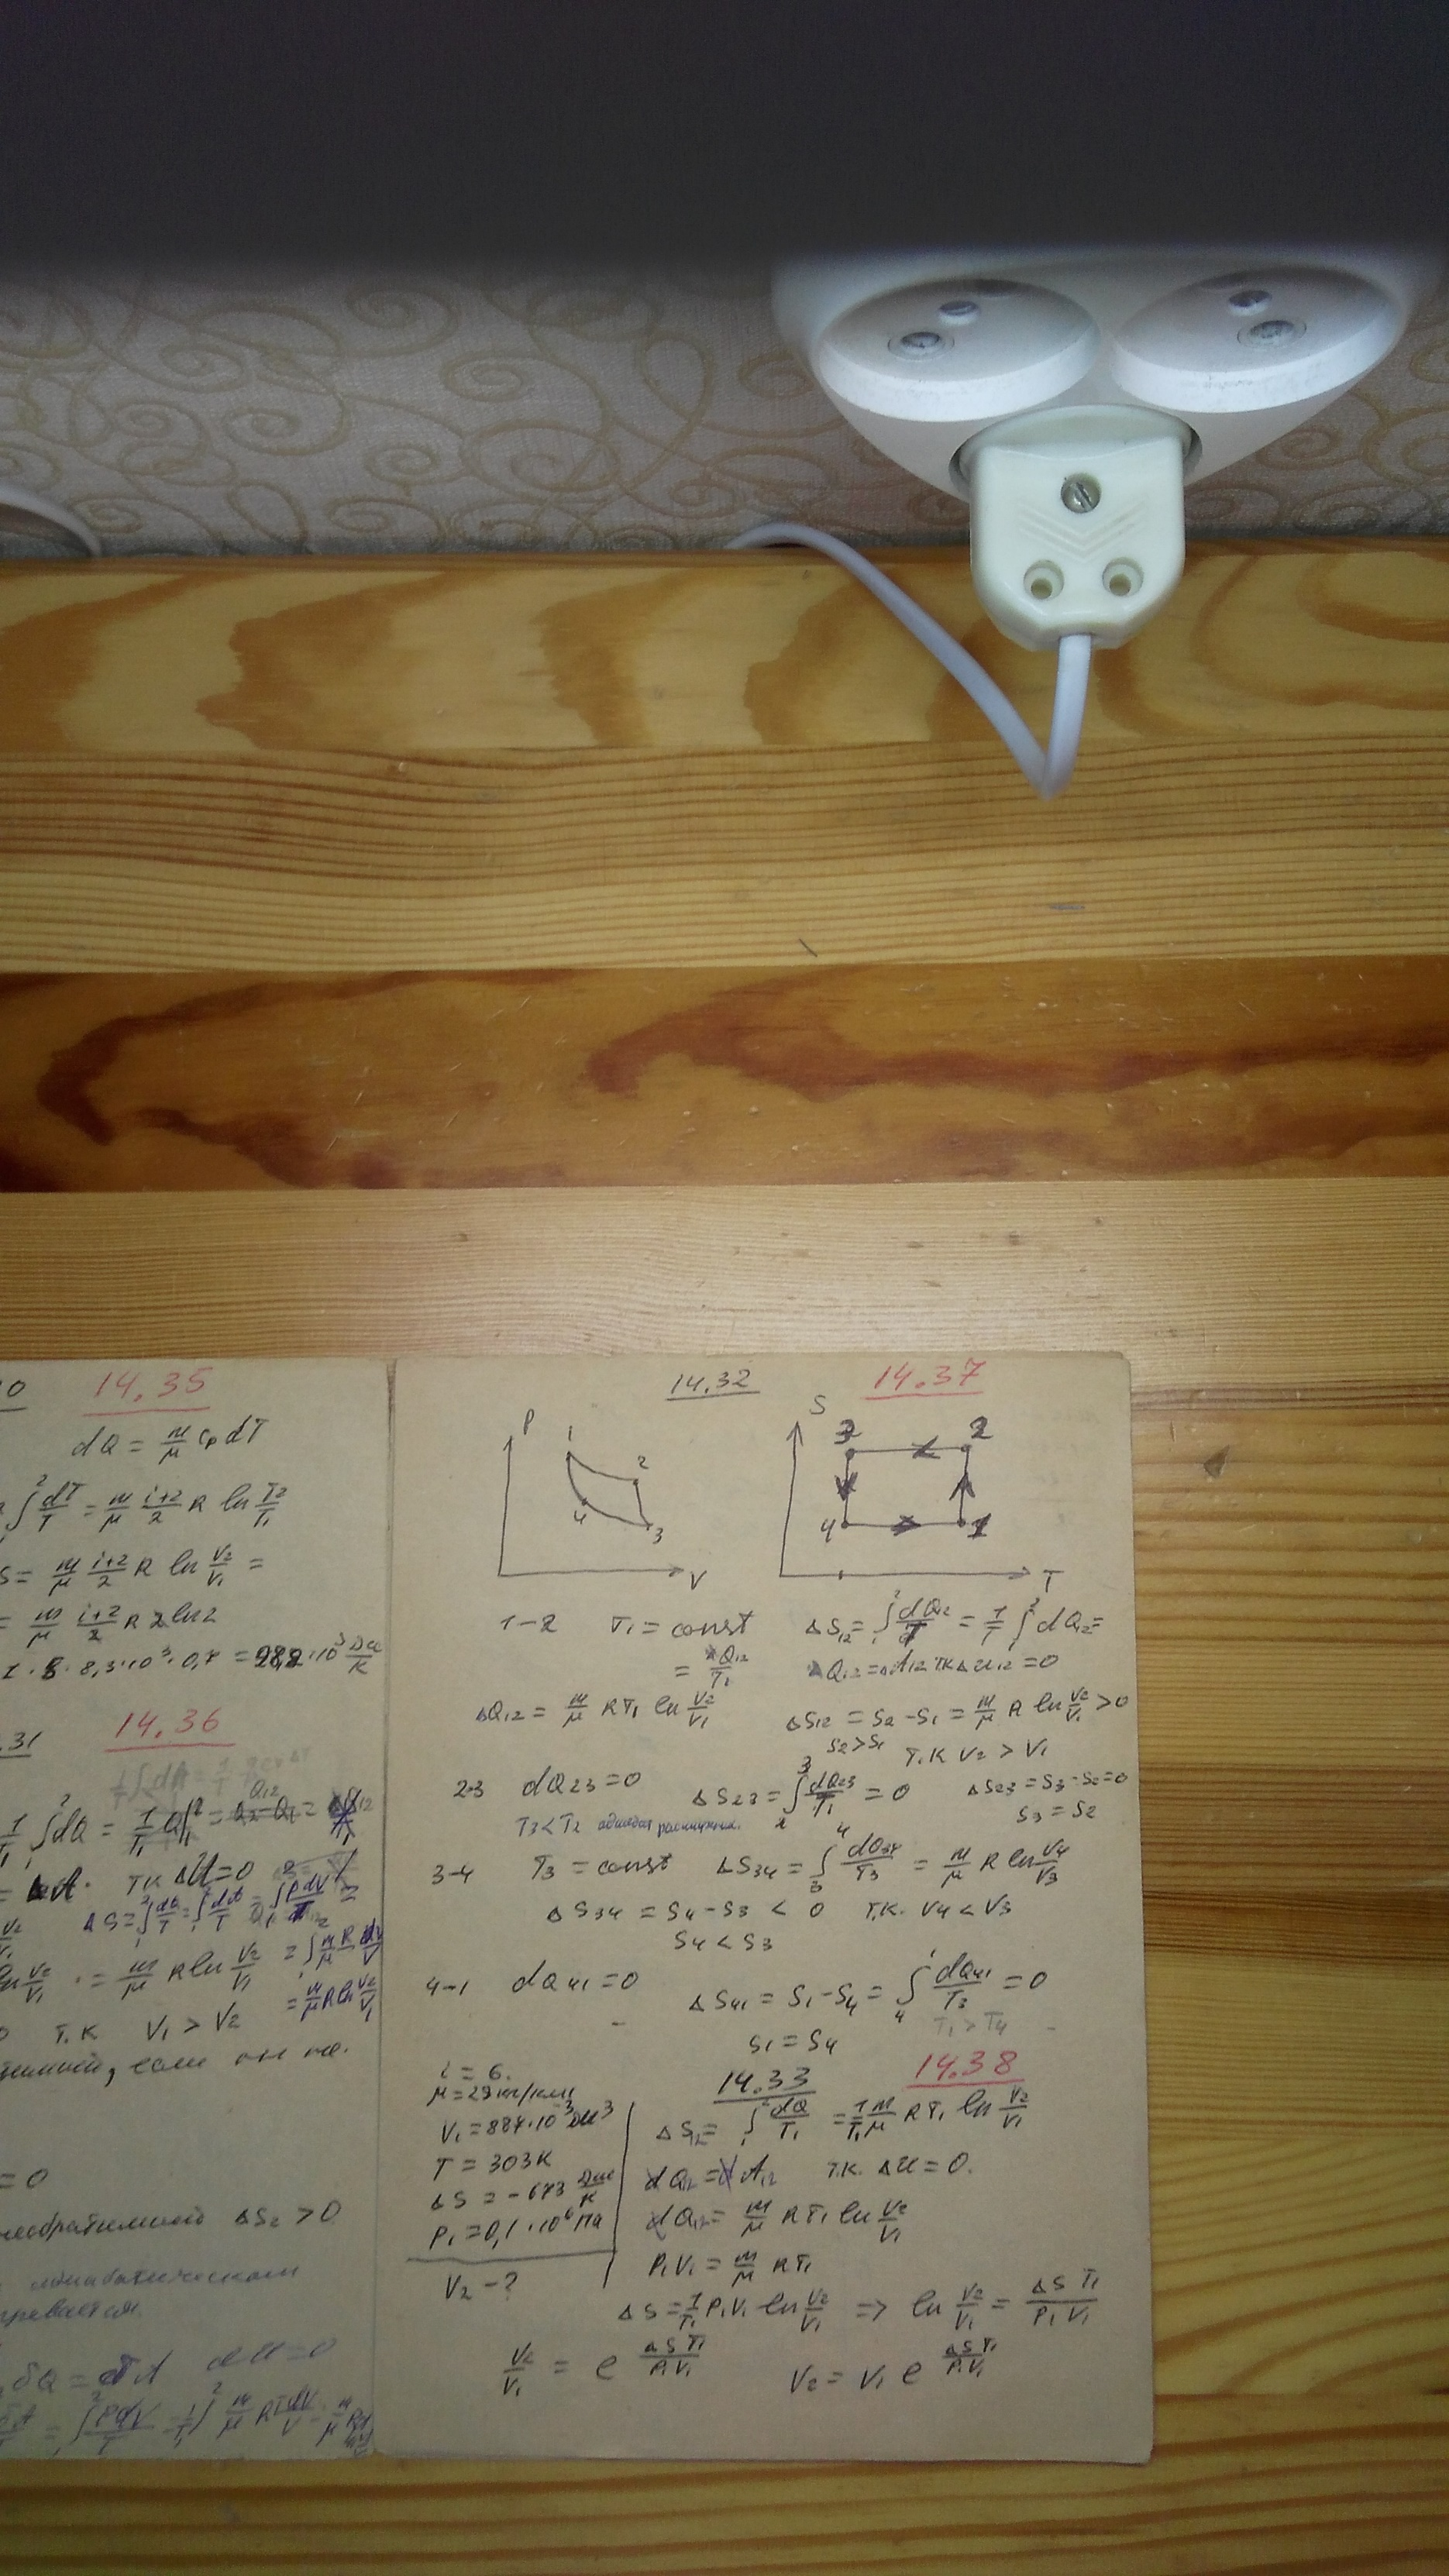 0 14.35
dQ = m/μ c_p dT
∫₁² dT/T = m/μ (i+2)/2 R ln T₂/T₁
S = m/μ (i+2)/2 R ln V₂/V₁ =
= m/μ (i+2)/2 R ln2
8,3·10³·0,7 =
.31 14.36
1/T₁ ∫dQ =
ТК ΔU=0
ΔS = ∫₁² dQ/T = ∫₁² dA/T = ∫ PdV/T =
ln V₂/V₁ · = m/μ R ln V₂/V₁ = ∫ m/μ R dV/V
= m/μ R ln V₂/V₁
Т.К V₁ > V₂
, если он не.
= 0
необратимый ΔS₂ > 0
адиабатическом
δQ = δA dU=0
= ∫₁² PdV/T = 1/T ∫² m/μ RT dV/V = m/μ R ln V₂/V₁
14.32 14.37
P 1 2 3 4 V
S 3 2 4 1 T
1–2 T₁ = const ΔS₁₂ = ∫₁² dQ₁₂/T = 1/T ∫₁² dQ₁₂ =
= Q₁₂/T₁ Q₁₂ = ΔA₁₂ ТК ΔU₁₂ = 0
ΔQ₁₂ = m/μ RT₁ ln V₂/V₁ ΔS₁₂ = S₂ - S₁ = m/μ R ln V₂/V₁ > 0
S₂ > S₁ Т.К V₂ > V₁
2-3 dQ₂₃ = 0 ΔS₂₃ = ∫₂³ dQ₂₃/T₁ = 0 ΔS₂₃ = S₃ - S₂ = 0
T₃ < T₂ S₃ = S₂
3-4 T₃ = const ΔS₃₄ = ∫₃⁴ dQ₃₄/T₃ = m/μ R ln V₄/V₃
ΔS₃₄ = S₄ - S₃ < 0 Т.К. V₄ < V₃
S₄ < S₃
4-1 dQ₄₁ = 0 ΔS₄₁ = S₁ - S₄ = ∫₄¹ dQ₄₁/T₃ = 0
T₁ > T₄
S₁ = S₄
14.33 14.38
i = 6.
μ = 29 кг/кмл
V₁ = 887·10⁻³ дм³
T = 303К
ΔS = -673 Дж/К
P₁ = 0,1·10⁶ Па
V₂ - ?
ΔS₁₂ = ∫₁² dQ/T₁ = 1/T₁ m/μ RT₁ ln V₂/V₁
Q₁₂ = A₁₂ Т.К. ΔU = 0.
Q₁₂ = m/μ RT₁ ln V₂/V₁
P₁V₁ = m/μ RT₁
ΔS = 1/T₁ P₁V₁ ln V₂/V₁ => ln V₂/V₁ = ΔS T₁/P₁ V₁
V₂/V₁ = e^(ΔS T₁/P₁V₁) V₂ = V₁ e^(ΔS T₁/P₁V₁)